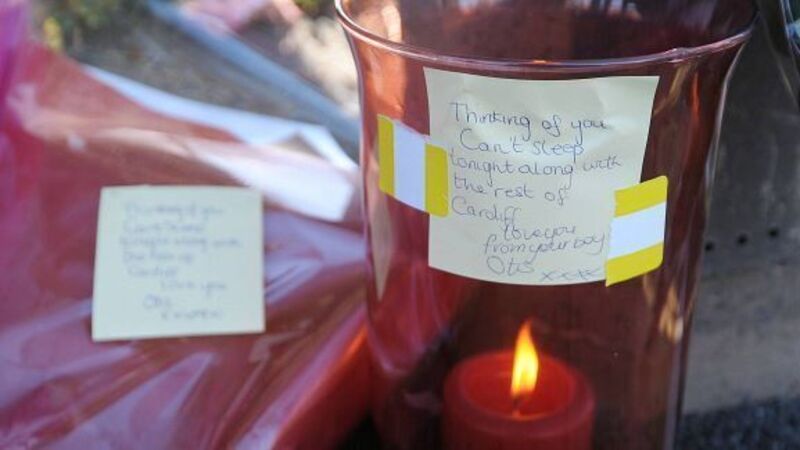 Thinking of you
Can't sleep
tonight along with
the rest of
Cardiff
love you
from your boy
Otis xxxx
Thinking of you
Can't sleep
tonight along with
the rest of
Cardiff
love you
Otis